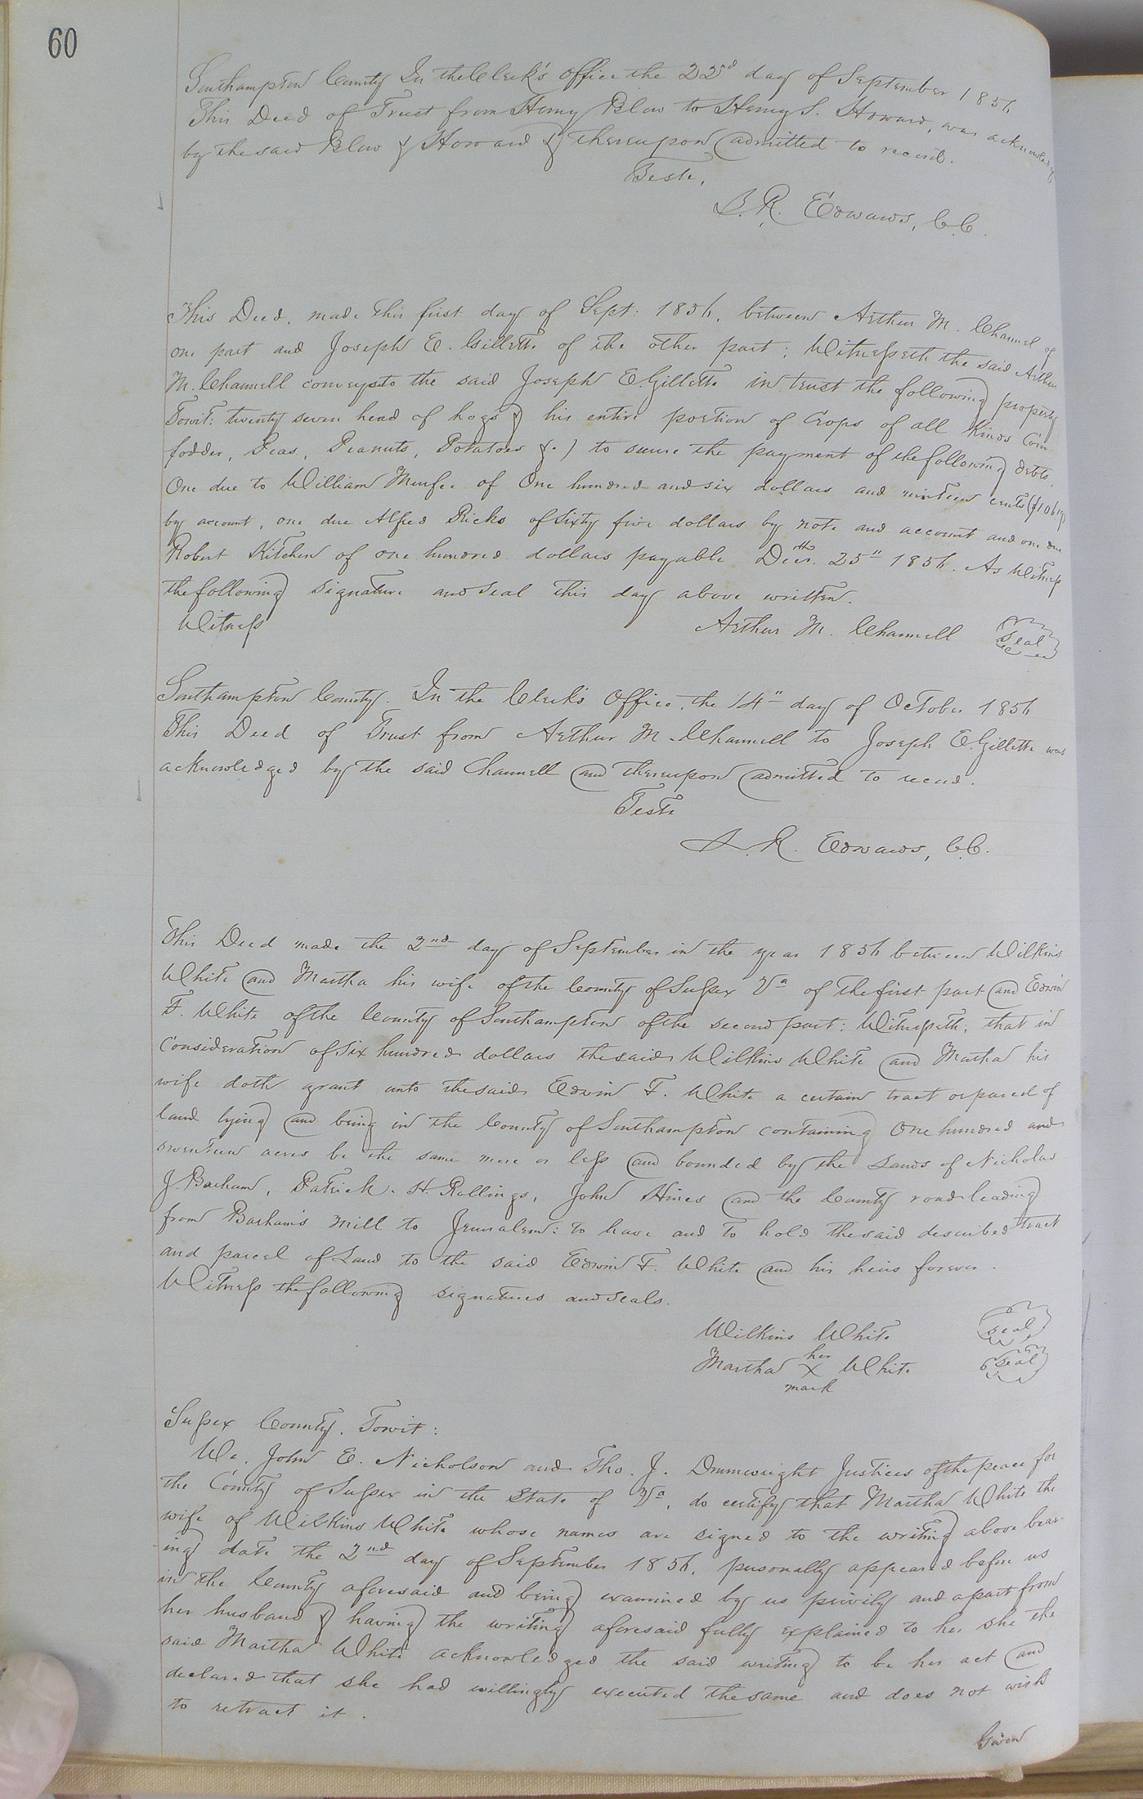 60
Southampton County In the Clerk's Office the 22d day of September 1856
This Deed of Trust from Henry Blow to Henry S. Howard, was acknowledged
by the said Blow & Howard & thereupon admitted to record.
Teste,
L. R. Edwards, C.C.
This Deed, made this first day of Sept: 1856, between Arthur M. Channell of
one part and Joseph E. Gillette of the other part; Witnesseth the said Arthur
M. Channell conveys to the said Joseph E. Gillette in trust the following property
Towit: twenty seven head of hogs & his entire portion of Crops of all kinds Corn
fodder, Peas, Peanuts, Potatoes &.) to secure the payment of the following debts.
One due to William Murfee of One hundred and six dollars and nineteen cents ($106.19)
by account, one due Alfred Ricks of Sixty five dollars by note and account and one due
Robert Kitchen of one hundred dollars payable Decr. 25th 1856. As Witness
the following signature and seal this day above written.
Witness Arthur M. Channell Seal
Southampton County. In the Clerk's Office, the 14" day of October 1856
This Deed of Trust from Arthur M. Channell to Joseph E. Gillette was
acknowledged by the said Channell and thereupon admitted to record.
Teste
L. R. Edwards, C.C.
This Deed made the 2nd day of September in the year 1856 between Wilkins
White and Martha his wife of the County of Sussex Va of the first part and Edwin
F. White of the County of Southampton of the second part: Witnesseth; that in
consideration of Six hundred dollars the said Wilkins White and Martha his
wife doth grant unto the said Edwin F. White a certain tract or parcel of
land lying and being in the County of Southampton containing One hundred and
seventeen acres be the same more or less and bounded by the Lands of Nicholas
J. Barham, Patrick. H. Rollings, John Hines and the County road leading
from Barham's mill to Jerusalem: to have and to hold the said described tract
and parcel of Land to the said Edwin F. White and his heirs forever.
Witness the following signatures and seals.
Wilkins White seal
Martha her X mark White seal
Sussex County. Towit:
We, John E. Nicholson and Tho. J. Drumwright Justices of the peace for
the County of Sussex in the State of Va, do certify that Martha White the
wife of Wilkins White whose names are signed to the writing above bear-
-ing date the 2nd day of September 1856, personally appeared before us
in the County aforesaid and being examined by us privily and apart from
her husband & having the writing aforesaid fully explained to her she the
said Martha White acknowledged the said writing to be her act and
declared that she had willingly executed the same and does not wish
to retract it.
Given